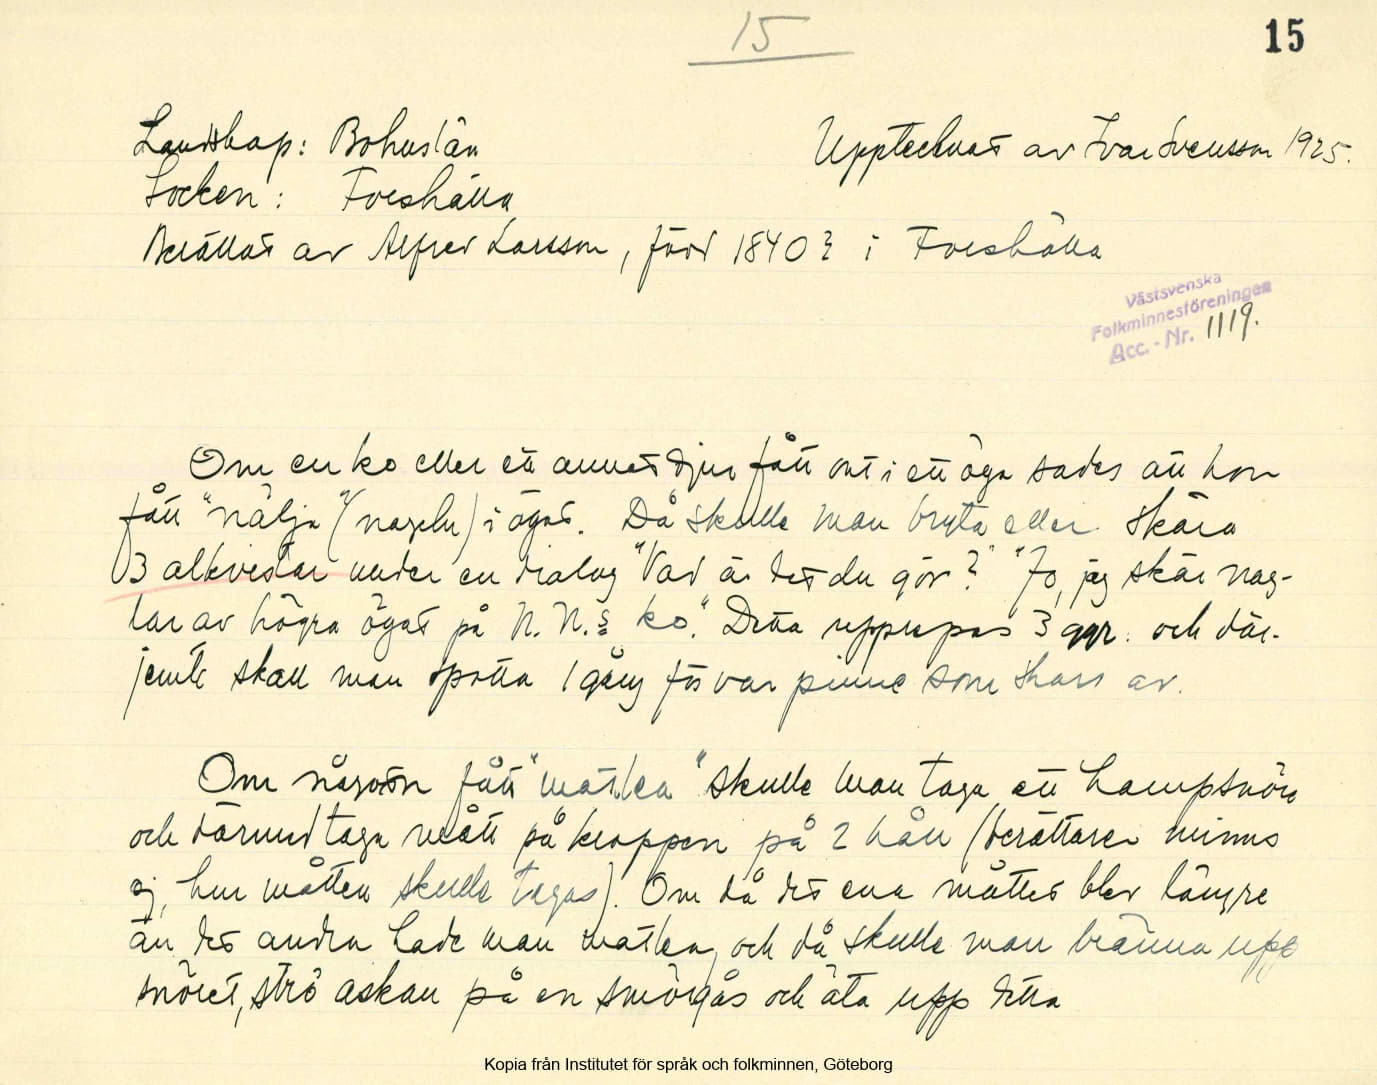 15
15
Landskap: Bohuslän
Upptecknat av Ivar Svensson 1925.
Socken: Foreshälla
Berättat av Alfred Larsson, född 1840? i Foreshälla
Västsvenska
Folkminnesföreningen
Acc.-Nr. 1119.
Om en ko eller ett annat djur fått ont i ett öga sades att hon
fått "nälja" (nageln) i ögat. Då skulle man bryta eller skära
3 alkvistar under en dialog "Vad är det du gör?" "Jo, jag skär nag-
lar av högra ögat på N. N.s ko." Detta upprepas 3 ggr. och där-
jemte skall man spotta 1 gång för var pinne som skars av.
Om någon fått "matlea" skulle man taga ett hampsnöre
och därmed taga mått på kroppen på 2 håll (berättaren minns
ej, hur måtten skulle tagas). Om då det ena måttet blev längre
än det andra hade man matlea, och då skulle man bränna upp
snöret, strö askan på en smörgås och äta upp detta
Kopia från Institutet för språk och folkminnen, Göteborg